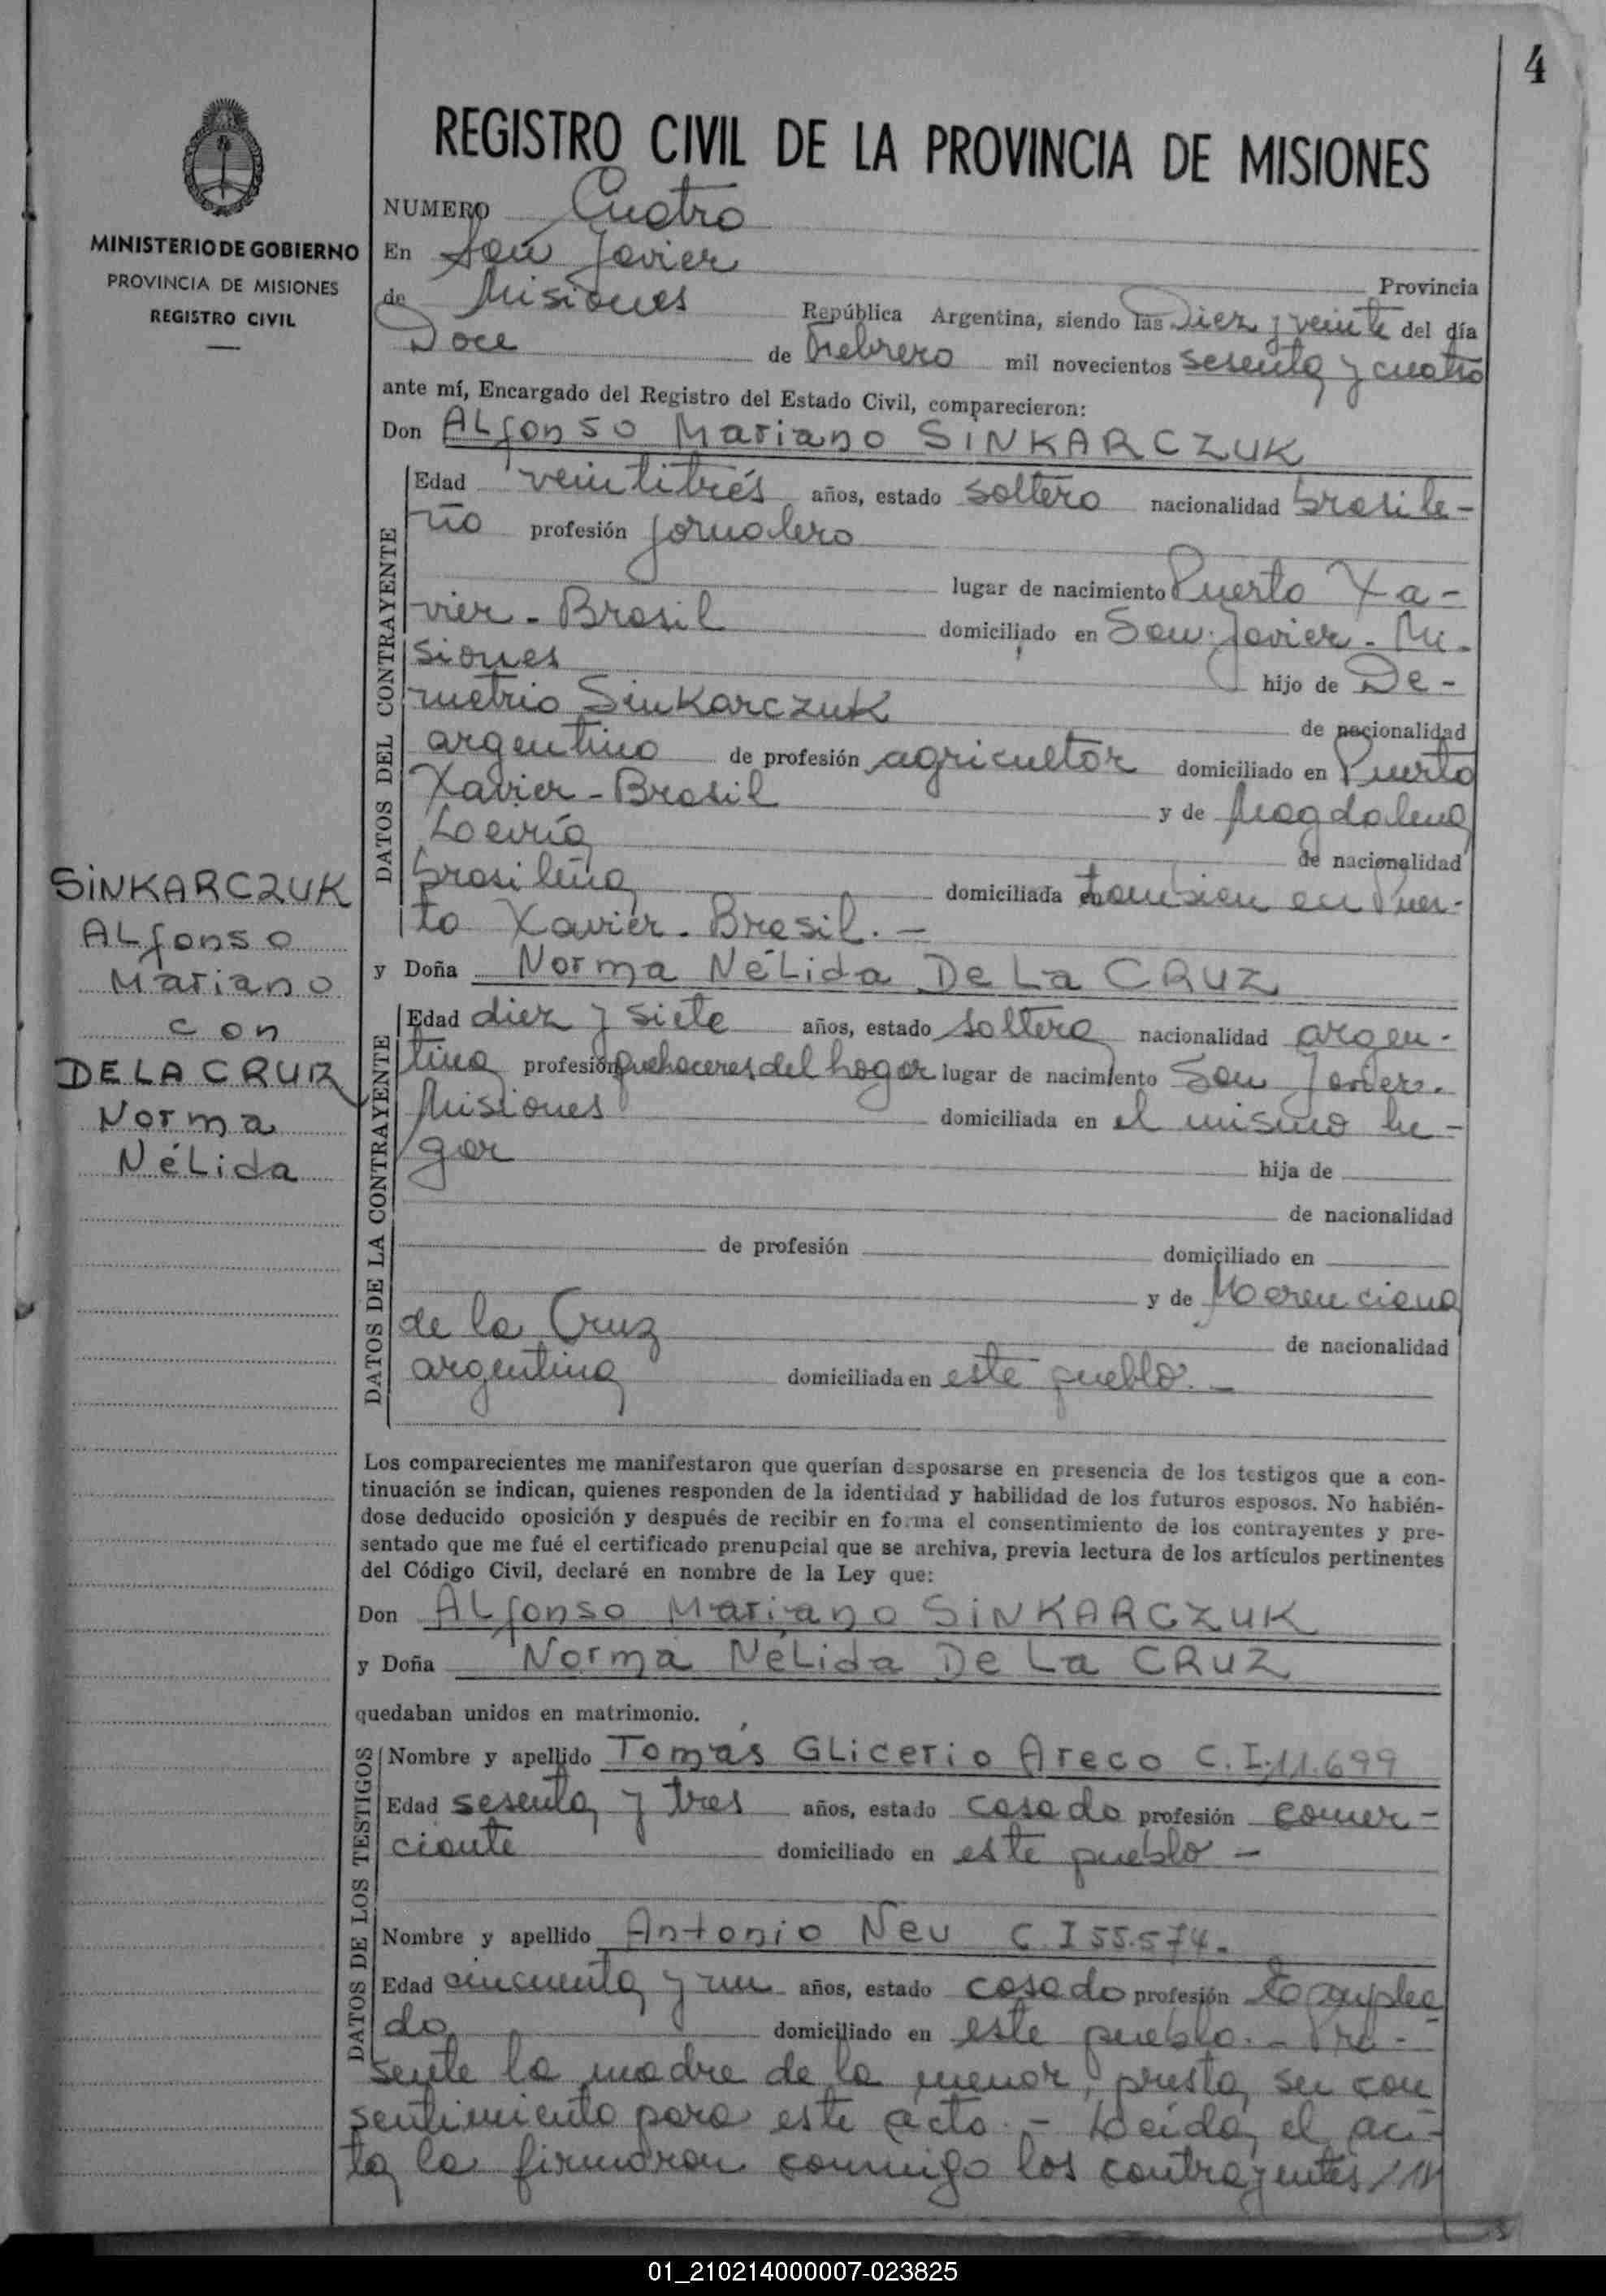 4
REGISTRO CIVIL DE LA PROVINCIA DE MISIONES
MINISTERIO DE GOBIERNO
PROVINCIA DE MISIONES
REGISTRO CIVIL
NUMERO Cuatro
En San Javier Provincia
de Misiones República Argentina, siendo las Diez y veinte del día
Doce de Febrero mil novecientos sesenta y cuatro
ante mí, Encargado del Registro del Estado Civil, comparecieron:
Don ALfonso Mariano SiNKARCZUK
DATOS DEL CONTRAYENTE
Edad veintitrés años, estado soltero nacionalidad brasile-
ño profesión jornalero
lugar de nacimiento Puerto Xa-
vier - Brasil domiciliado en San Javier - Mi-
siones hijo de De-
metrio Sinkarczuk de nacionalidad
argentino de profesión agricultor domiciliado en Puerto
Xavier - Brasil y de Magdalena
de nacionalidad
brasileña domiciliada en tambien en Puer-
to Xavier - Brasil. -
y Doña Norma NéLida De La CRUZ
SiNKARCZUK
ALfonso
Mariano
con
DE LA CRUZ
Norma
NéLida
DATOS DE LA CONTRAYENTE
Edad diez y siete años, estado soltera nacionalidad argen-
tina profesión quehaceres del hogar lugar de nacimiento San Javier -
Misiones domiciliada en el mismo lu-
gar hija de
de nacionalidad
de profesión domiciliado en
y de
de la Cruz de nacionalidad
argentina domiciliada en este pueblo. -
Los comparecientes me manifestaron que querían desposarse en presencia de los testigos que a con-
tinuación se indican, quienes responden de la identidad y habilidad de los futuros esposos. No habién-
dose deducido oposición y después de recibir en forma el consentimiento de los contrayentes y pre-
sentado que me fué el certificado prenupcial que se archiva, previa lectura de los artículos pertinentes
del Código Civil, declaré en nombre de la Ley que:
Don ALfonso Mariano SiNKARCZUK
y Doña Norma NéLida De La CRUZ
quedaban unidos en matrimonio.
DATOS DE LOS TESTIGOS
Nombre y apellido Tomás GLicerio Areco C.I.11.699
Edad sesenta y tres años, estado casado profesión comer-
ciante domiciliado en este pueblo -
Nombre y apellido Antonio Neu C.I 55.574.
Edad cincuenta y un años, estado casado profesión Emplea
do domiciliado en este pueblo. - Pre-
sente la madre de la menor, presta su con
sentimiento para este acto. - Leída, el ac-
ta la firmaron conmigo los contrayentes ///
01_210214000007-023825